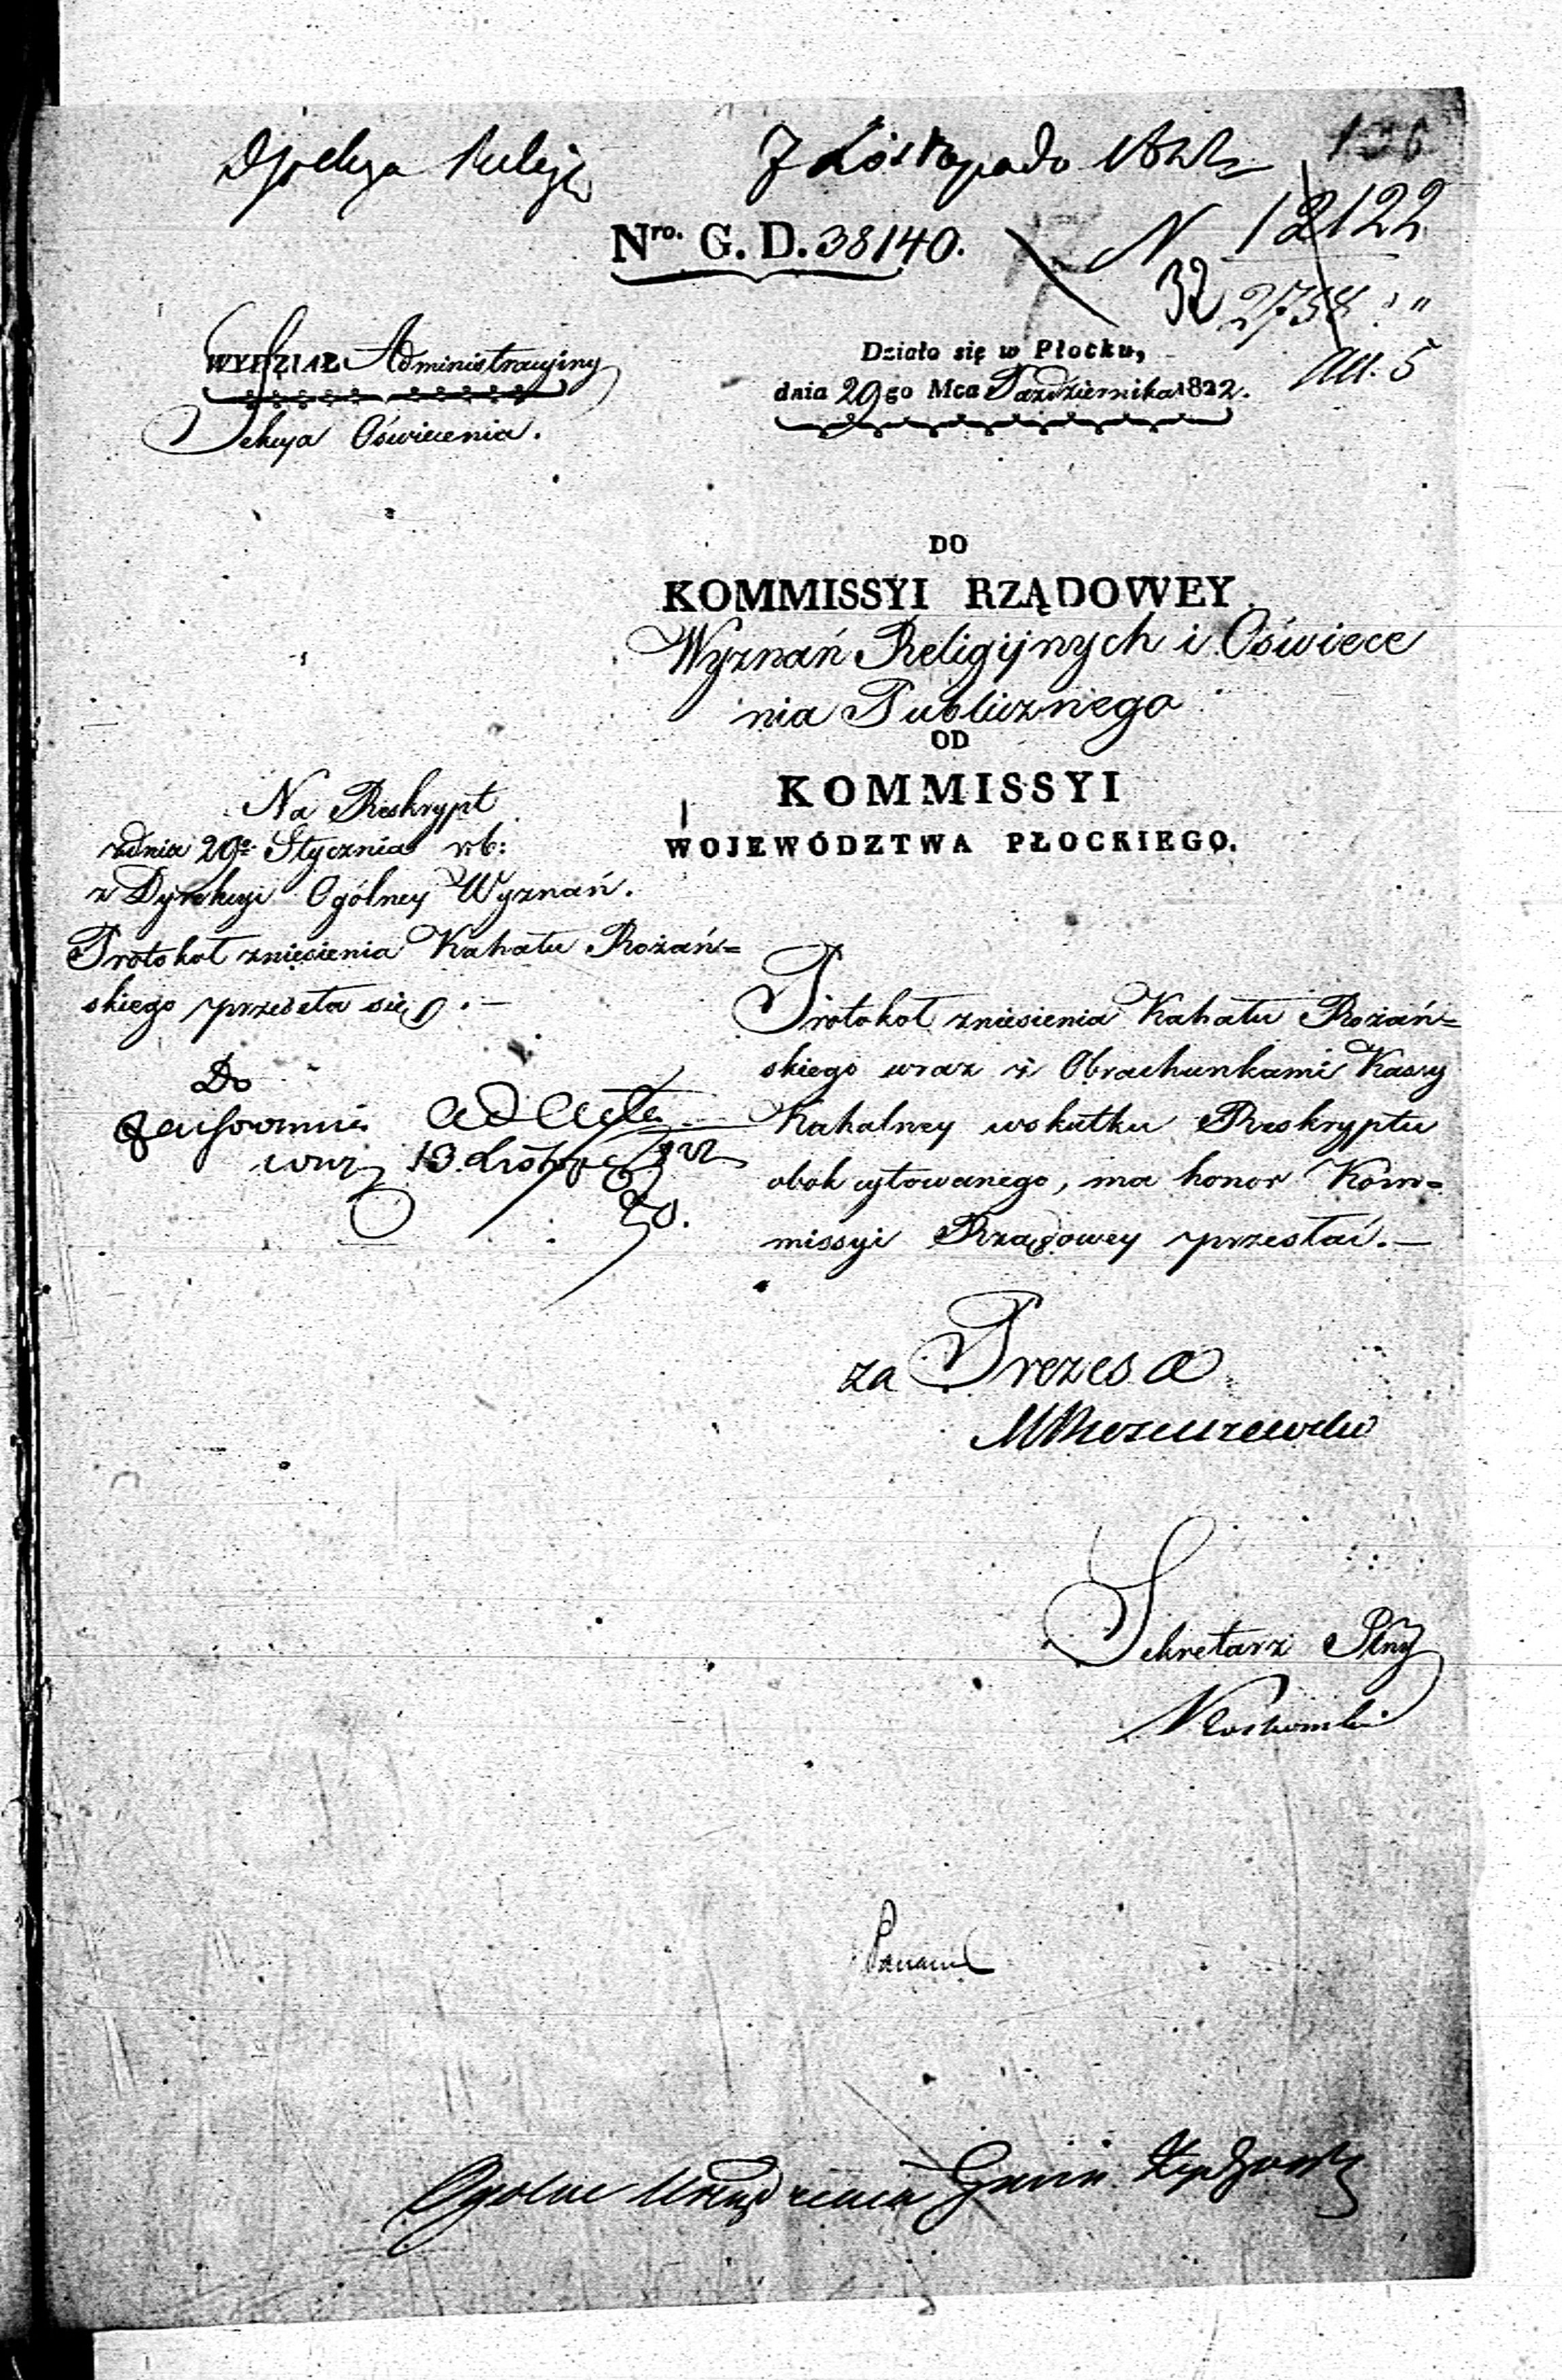 7 Listopada 1822
136
Nro. G. D. 38140.
N 12122
32 2758
WYDZIAŁ Administracyiny
Sekcya Oświecenia.
Działo się w Płocku,
dnia 29go Mca Października 1822.
DO
KOMMISSYI RZĄDOWEY
Wyznań Religijnych i Oświece
nia Publicznego
OD
KOMMISSYI
WOJEWÓDZTWA PŁOCKIEGO.
Na Reskrypt
zdnia 29go Stycznia rb:
z Dyrekcyi Ogólney Wyznań.
Protokoł zniesienia Kahału Rożań=
skiego przeseła się.—
Protokoł zniesienia Kahału Rożań=
skiego wraz z Obrachunkami Kassy
Kahalney wskutku Reskryptu
obok cytowanego, ma honor Kom=
missyi Rządowey przesłać.—
Do
ad acta
13 Listop 1822
za Prezesa
Sekretarz Jlny
Ogolne Urządzenia Gmin